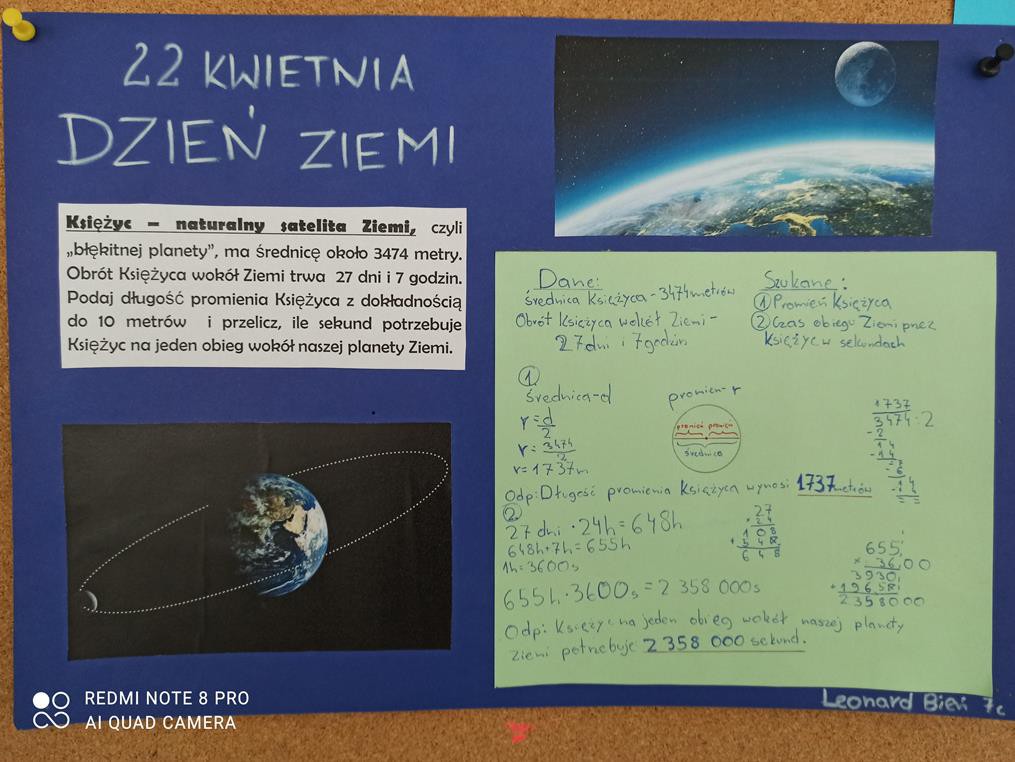 22 KWIETNIA
DZIEŃ ZIEMI
Księżyc – naturalny satelita Ziemi, czyli
„błękitnej planety”, ma średnicę około 3474 metry.
Obrót Księżyca wokół Ziemi trwa 27 dni i 7 godzin.
Podaj długość promienia Księżyca z dokładnością
do 10 metrów i przelicz, ile sekund potrzebuje
Księżyc na jeden obieg wokół naszej planety Ziemi.
Dane:
średnica Księżyca - 3474 metrów
Obrót Księżyca wokół Ziemi -
27 dni i 7 godzin
Szukane:
① Promień Księżyca
② Czas obiegu Ziemi przez
Księżyc w sekundach
①
średnica - d
r = d/2
r = 3474/2
r = 1737m
promień - r
promień promień
średnica
1737
3474 : 2
-2
14
-14
Odp: Długość promienia Księżyca wynosi 1737 metrów
②
27 dni · 24h = 648h
648h + 7h = 655h
1h = 3600s
655h · 3600s = 2 358 000s
27
108
648
655
× 3600
3930
+ 1965
2358000
Odp: Księżyc na jeden obieg wokół naszej planety
Ziemi potrzebuje 2 358 000 sekund.
Leonard Bień 7c
REDMI NOTE 8 PRO
AI QUAD CAMERA